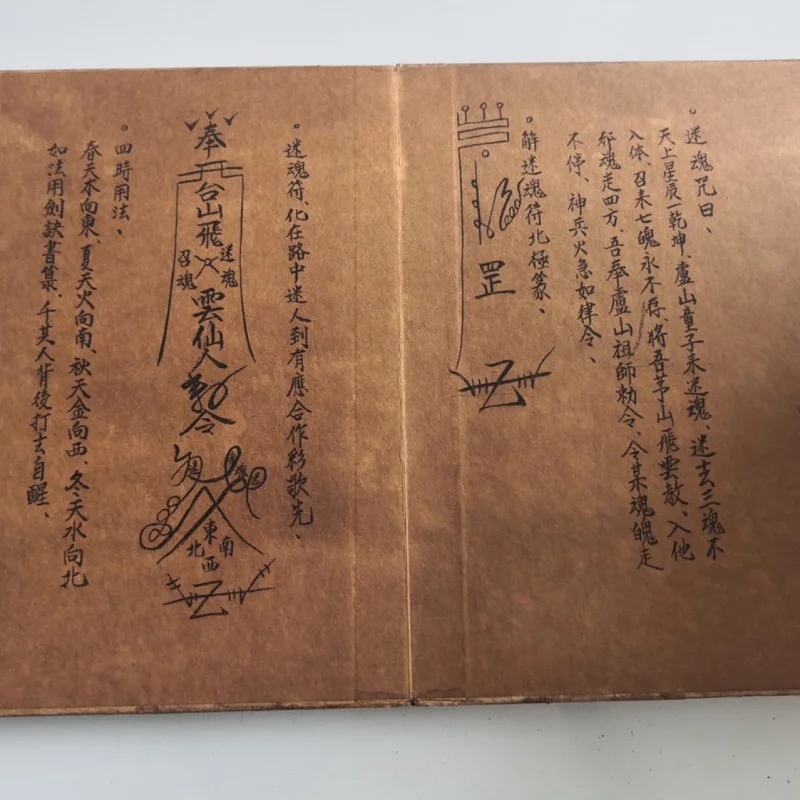 。迷魂咒曰、
天上星辰一乾坤、盧山童子来迷魂、迷去三魂不
入体、召来七魄永不存、将吾茅山飛雲教、入他
邪魂走四方、吾奉盧山祖師勅令、令某魂魄走
不停、神兵火急如律令、
。解迷魂符北極篆、
罡
。迷魂符、化在路中迷人到有應合作彩歌先、
奉
台山飛
迷魂
召魂
雲仙人
勅令
東
南
西
北
。四時用法、
春天木向東、夏天火向南、秋天金向西、冬天水向北
如法用劍訣書篆、千其人背後打去自醒、